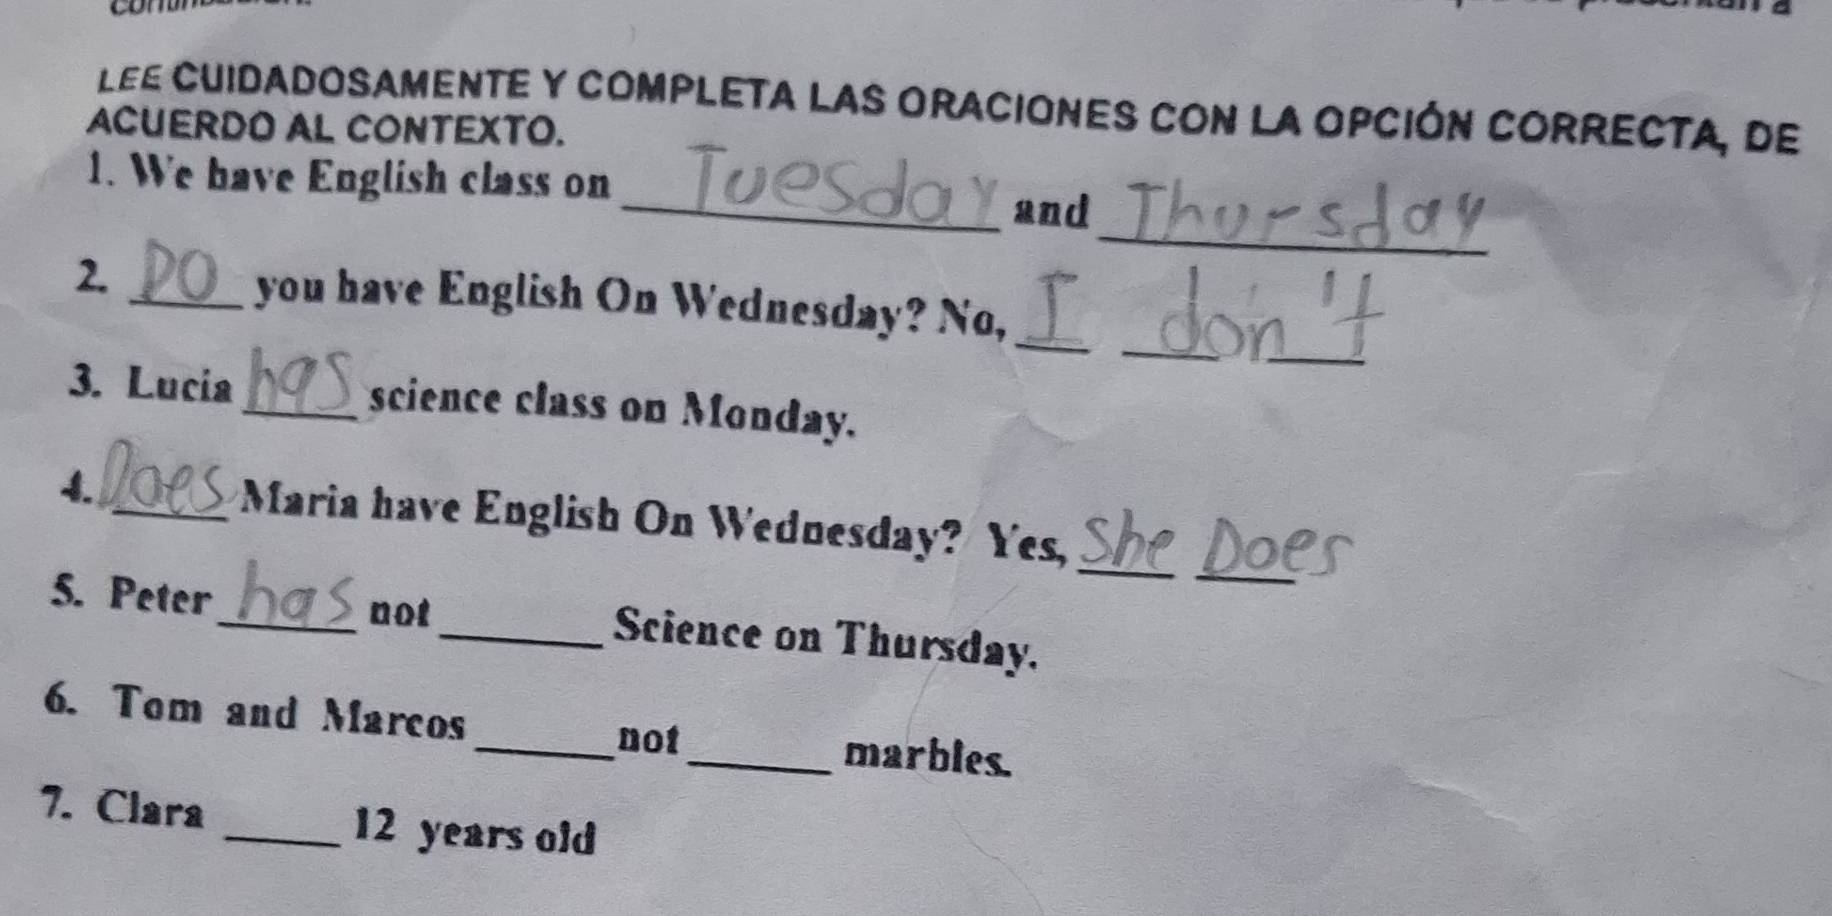 LEE CUIDADOSAMENTE Y COMPLETA LAS ORACIONES CON LA OPCIÓN CORRECTA, DE
ACUERDO AL CONTEXTO.
1. We have English class on Tuesday and Thursday
2. DO you have English On Wednesday? No, I don't
3. Lucia has science class on Monday.
4. Does Maria have English On Wednesday? Yes, She Does
5. Peter has not ______ Science on Thursday.
6. Tom and Marcos ______ not ______ marbles.
7. Clara ______ 12 years old